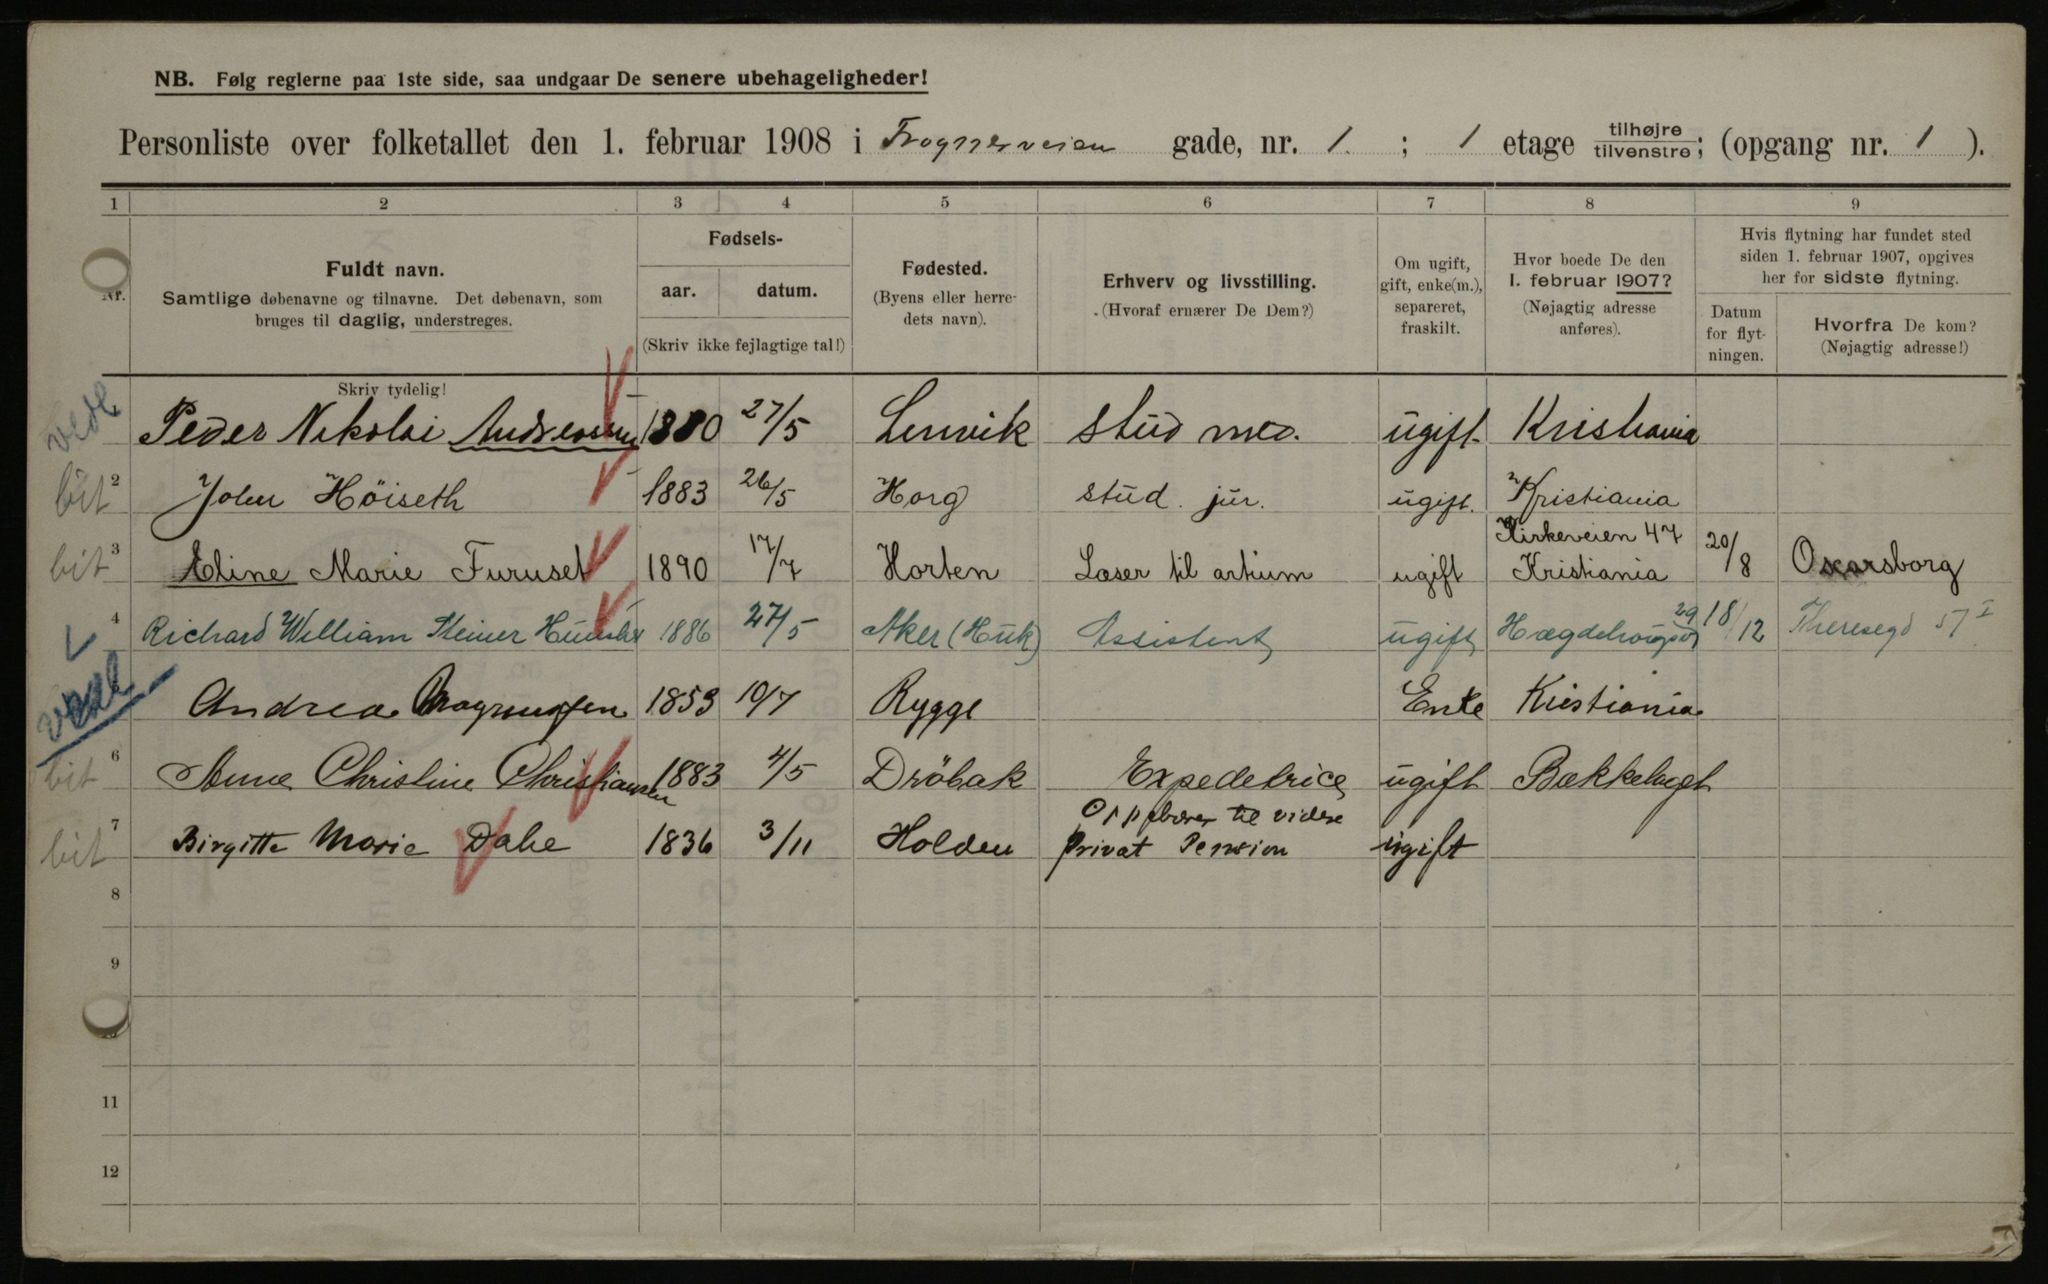 NB. Følg reglerne paa 1ste side, saa undgaar De senere ubehageligheder!
Personliste over folketallet den 1. februar 1908 i Frognerveien gade, nr. 1 ; 1 etage tilhøjre / tilvenstre; (opgang nr. 1 ).
1 2 3 4 5 6 7 8 9
Nr.
Fuldt navn.
Samtlige døbenavne og tilnavne. Det døbenavn, som
bruges til daglig, understreges.
Skriv tydelig!
Fødsels-
aar. datum.
(Skriv ikke fejlagtige tal!)
Fødested.
(Byens eller herre-
dets navn).
Erhverv og livsstilling.
(Hvoraf ernærer De Dem?)
Om ugift,
gift, enke(m.),
separeret,
fraskilt.
Hvor boede De den
1. februar 1907?
(Nøjagtig adresse
anføres).
Hvis flytning har fundet sted
siden 1. februar 1907, opgives
her for sidste flytning.
Datum
for flyt-
ningen.
Hvorfra De kom?
(Nøjagtig adresse!)
Peder Nikolai Andreassen 1880 27/5 Lenvik stud med. ugift Kristiania
bit 2 John Höiseth 1883 26/5 Horg stud. jur. ugift. Kristiania
Kirkeveien 47
bit 3 Eline Marie Furuset 1890 17/7 Horten Læser til artium ugift Kristiania 20/8 Oscarsborg
4 Richard William Steiner 1886 27/5 Aker (Huk) Assistent ugift 29 18/12 Theresegd 57 I
Andrea Magnussen 1853 10/7 Rygge Enke Kristiania
bit 6 Anne Christine Christiansen 1883 4/5 Dröbak Expeditrice ugift Bækkelaget
Oppebærer til videre
bit 7 Birgitte Marie Dahe 1836 3/11 Holden privat Pension ugift
8
9
11
12